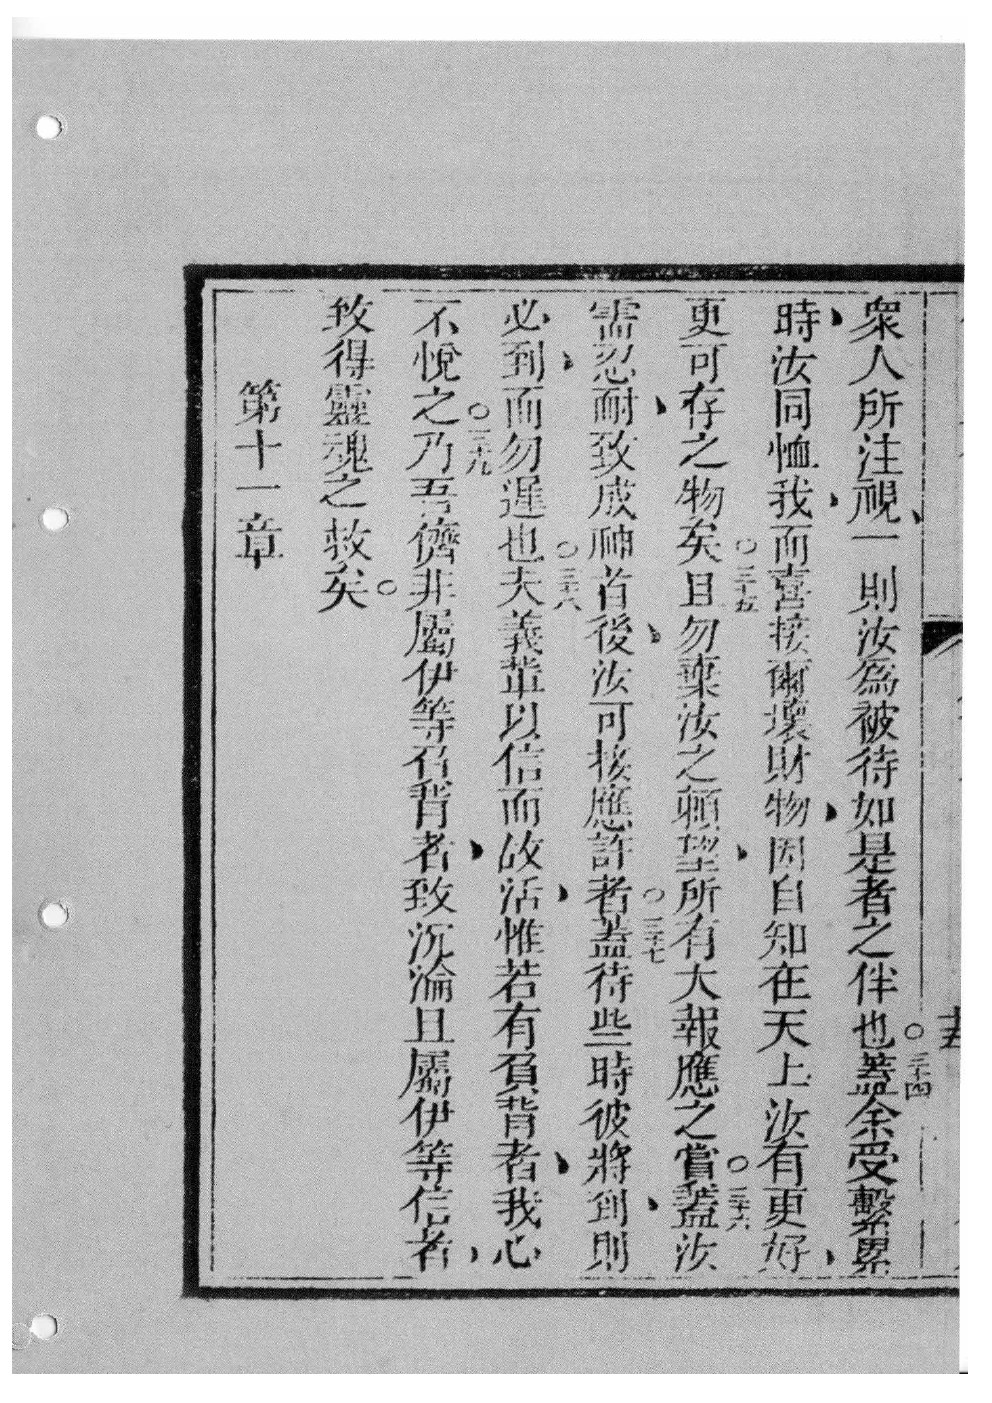 衆人所注視、一則汝爲被待如是者之伴也。三十四蓋余受繫累
時、汝同恤我、而喜接爾壞財物、因自知在天上汝有更好、
更可存之物矣。三十五且勿棄汝之頼望、所有大報應之嘗。三十六蓋汝
需忍耐、致成神旨後、汝可接應許者。三十七蓋待些時彼將到、則
必到、而勿遲也。三十八夫義輩以信而故活、惟若有負背者、我心
不悅之。三十九乃吾儕非屬伊等召背者、致沉淪、且屬伊等信者、
致得靈魂之救矣。
第十一章